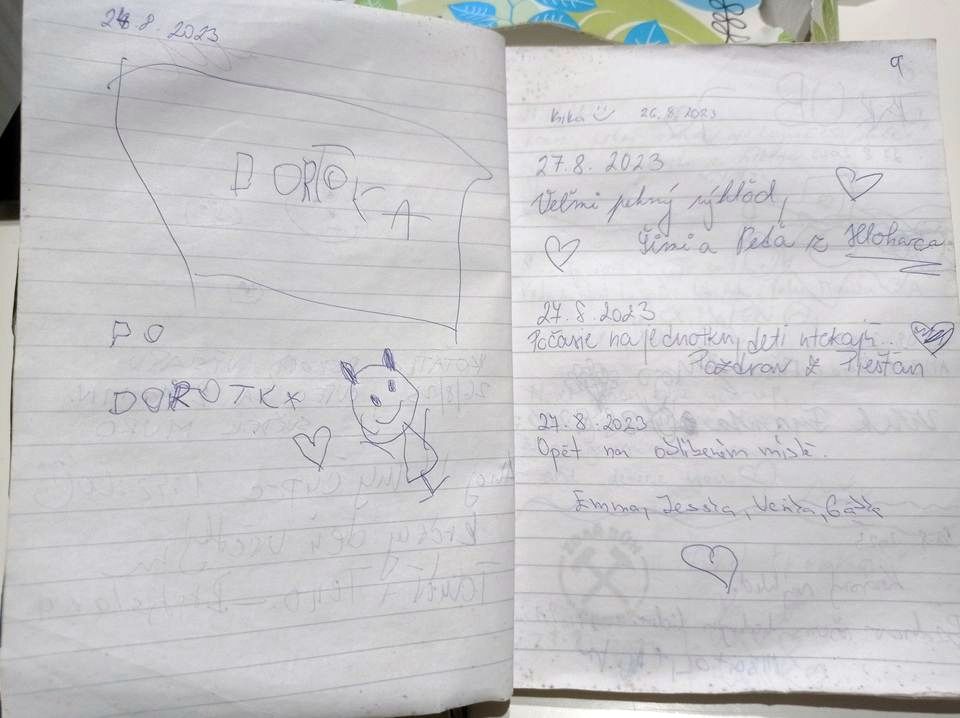 24.8.2023
DOROTKA
PO
DOROTKA
9
Kika 26.8.2023
27.8. 2023
Veľmi pekný výhľad,
Simi a Peťa z Hlohovca
27.8.2023
Počasie na jednotku, deti utekajú...
Pozdrav z Piešťan
27.8.2023
Opět na oblíbeném místě.
Emma, Jessia, Venda,